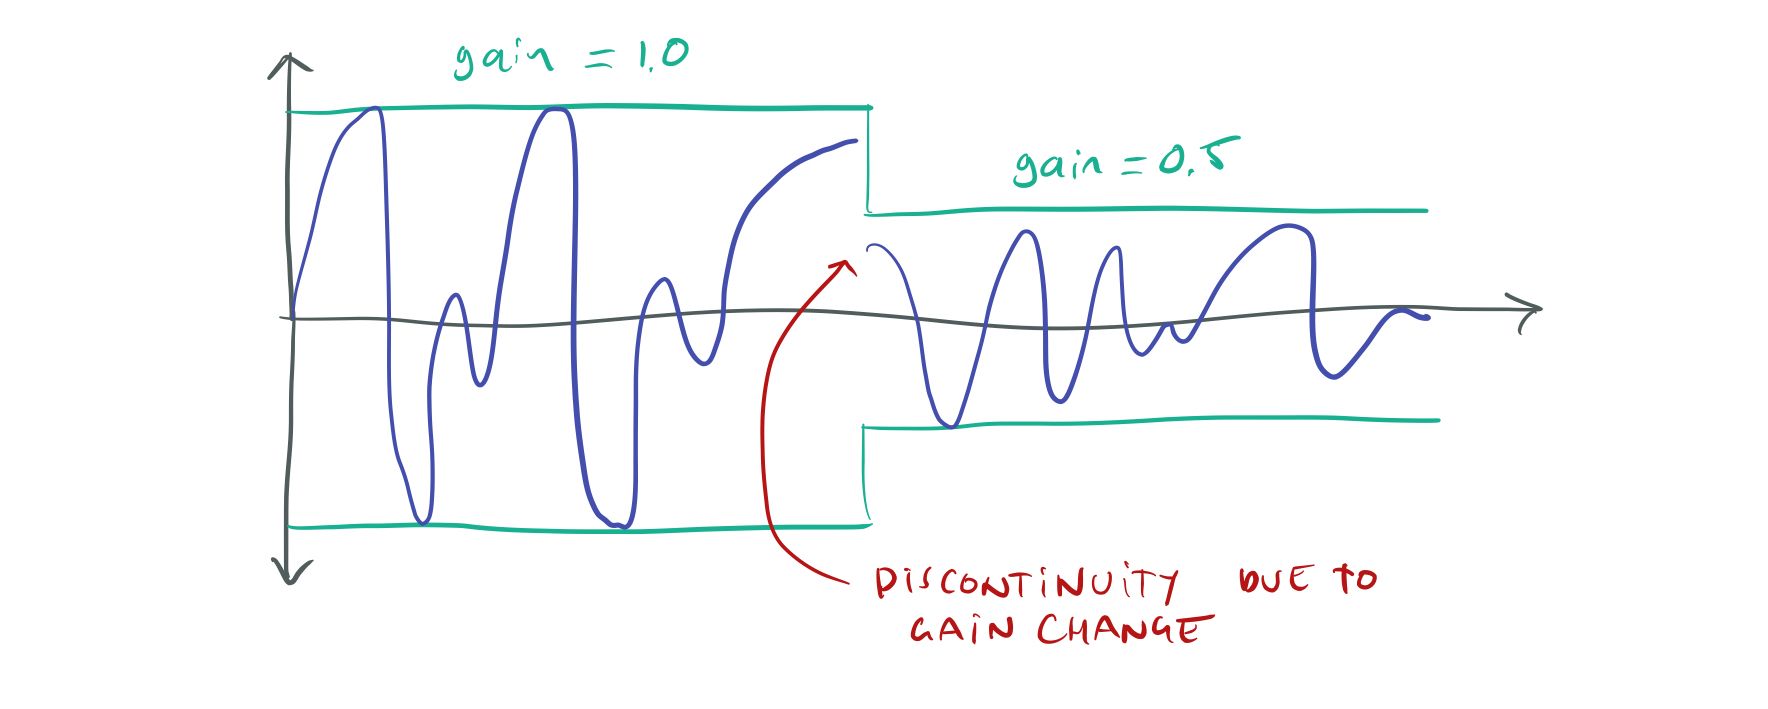 gain = 1.0
gain = 0.5
DISCONTINUITY DUE TO
GAIN CHANGE